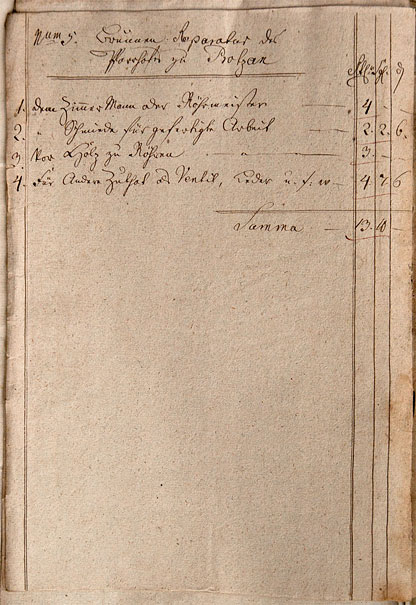 Num 5. Brunnen Apparatus des
Pfarrhofs zu Botzan
1. dem Zimmer Mann oder Röhrmeister — 4 —
2. " Schmiede für gefertigte Arbeit — 2. 2. 6.
3. Vor Holz zu Röhren — " — 3. —
4. Für Andere Zuthat als Ventil, Leder u. s. w — 4. 7. 6
Summa — 13. 10 —